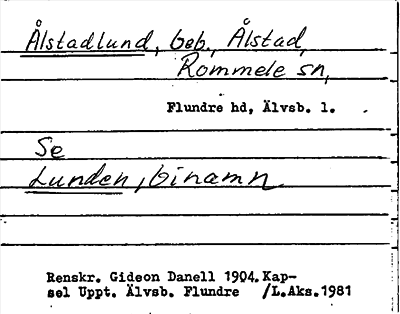 Ålstadlund, beb., Ålstad,
Rommele sn,
Flundre hd, Älvsb. l.
Se
Lunden, binamn.
Renskr. Gideon Danell 1904. Kap-
sel Uppt. Älvsb. Flundre /L.Aks.1981